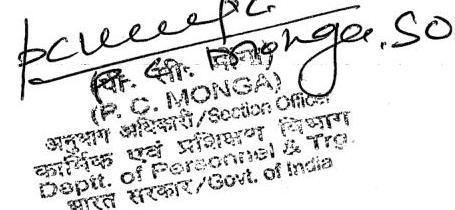 P.C. Monga, SO
(पी. सी. मोंगा)
(P. C. MONGA)
अनुभाग अधिकारी/Section Officer
कार्मिक एवं प्रशिक्षण विभाग
Deptt. of Personnel & Trg.
भारत सरकार/Govt. of India